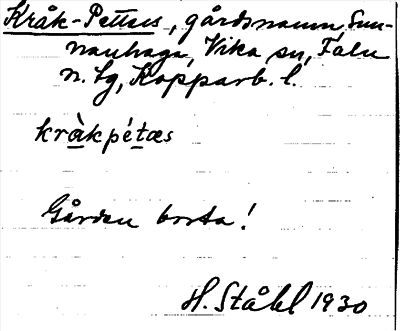 Kråk-Petters, gårdsnamn, Sun-
nanhaga, Vika sn, Falu
n. lg, Kopparb. l.
kràkpétæs
Gården borta!
H. Ståhl 1930